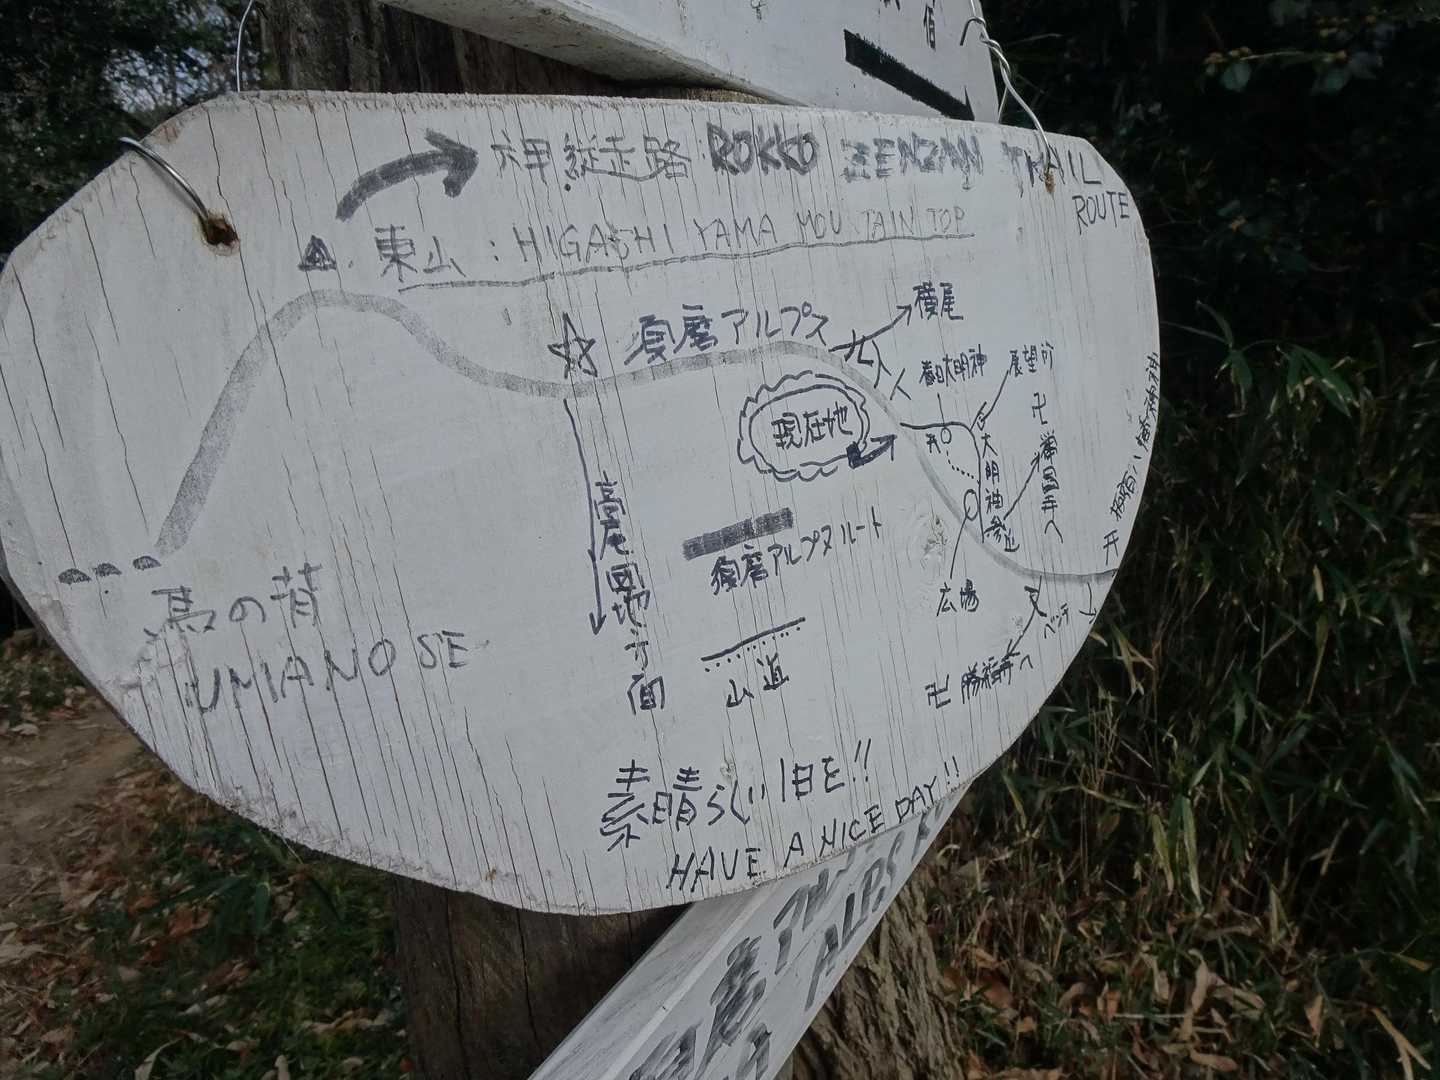 伯
六甲縦走路 ROKKO ZENZAN TRAIL
ROUTE
東山：HIGASHI YAMA MOUNTAIN TOP
須磨アルプス
横尾
春日大明神
展望所
現在地
大明神参道
卍 禅昌寺へ
高尾団地方面
須磨アルプスルート
広場
ベンチ
山道
卍 勝福寺へ
馬の背
UMANOSE
素晴らしい1日を!!
HAVE A NICE DAY!!
ALPS